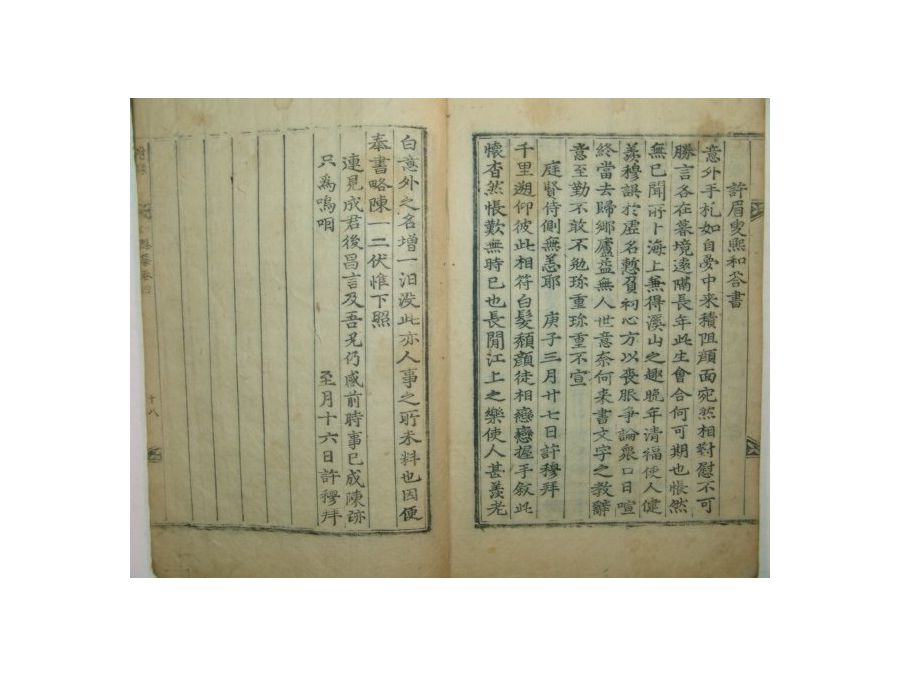 許眉叟熙和答書
意外手札如自夢中来積阻顔面宛然相對慰不可
勝言各在暮境遠隔長年此生會合何可期也悵然
無已聞所卜海上兼得溪山之趣晩年清福使人健
羡穆誤於虛名慙負初心方以喪服爭論衆口日喧
終當去歸鄉廬益無人世意奈何来書文字之教辭
意至勤不敢不勉珎重珎重不宣
庭賢侍側無恙耶　庚子三月廿七日許穆拜
千里遡仰彼此相符白髮頽顔徒相戀戀握手敘此
懷杳然悵歎無時已也長閒江上之樂使人甚羨老
白意外之名增一汨没此亦人事之所未料也因便
奉書略陳一二伏惟下照
連見成君後昌言及吾兄仍感前時事已成陳跡
只爲嗚啊　至月十六日許穆拜
十八